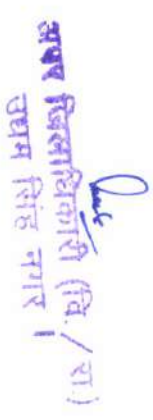 अपर जिलाधिकारी (वि./रा.)
उधम सिंह नगर।